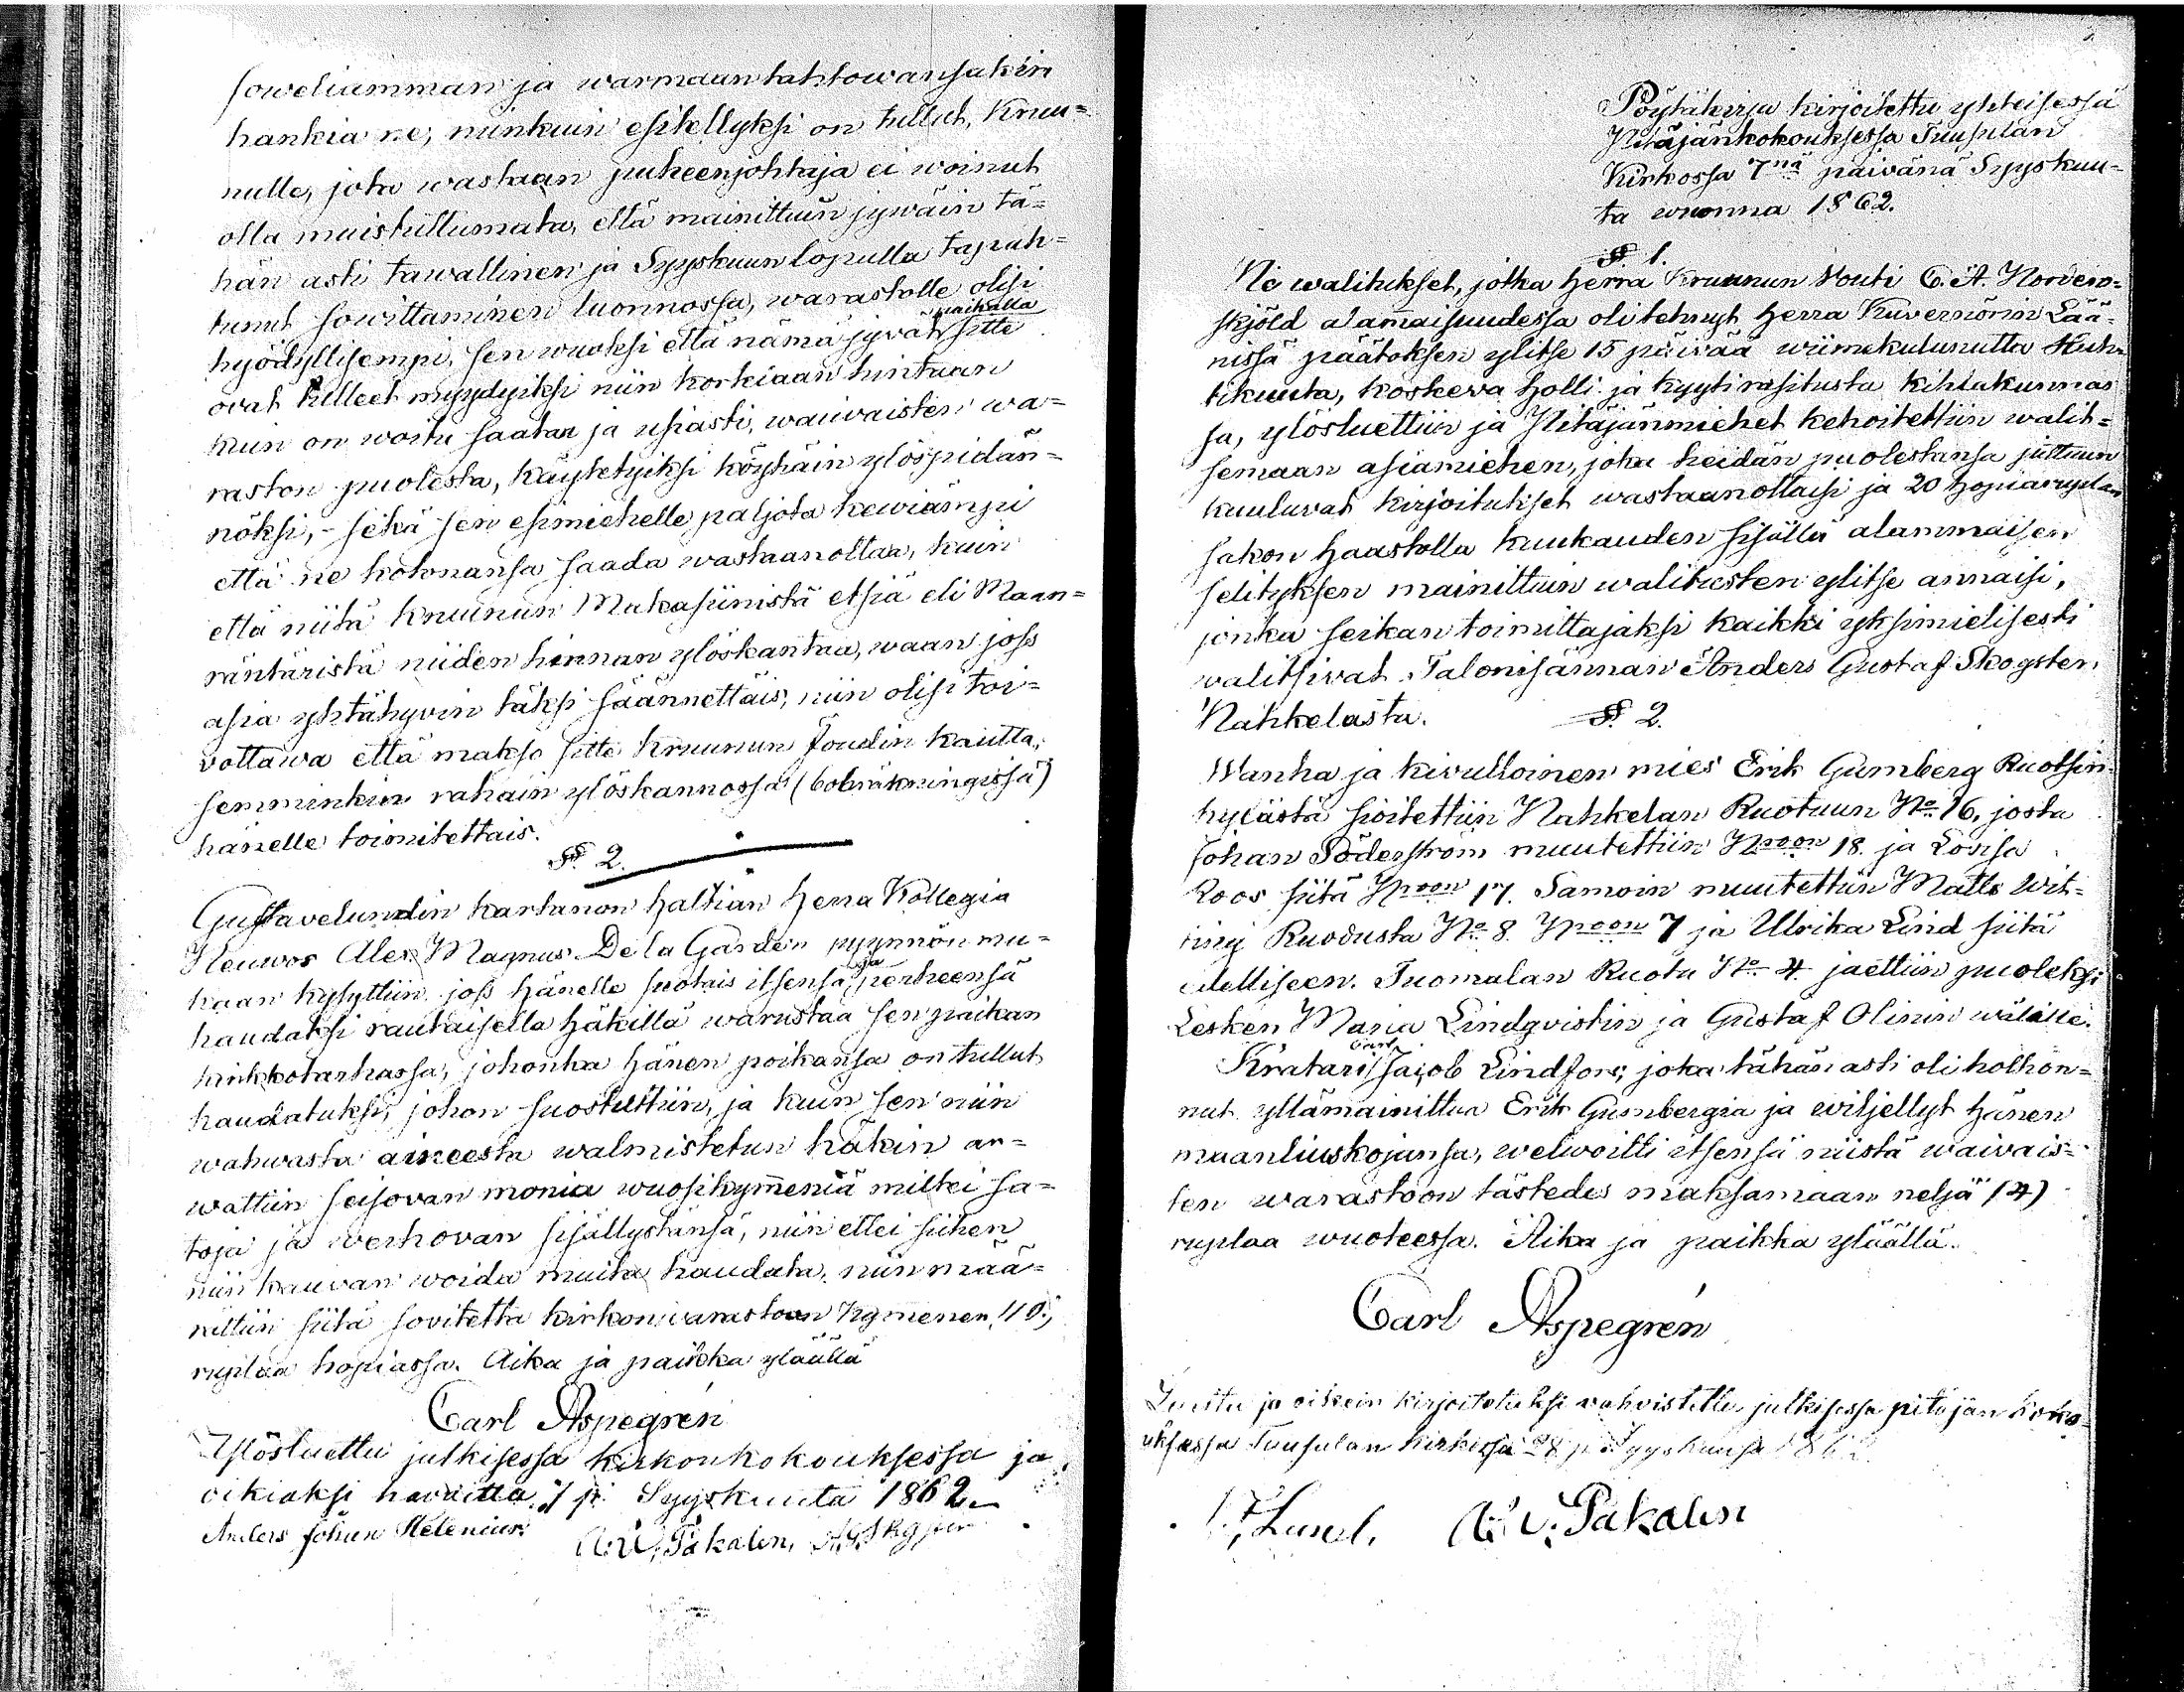 soweliamman ja warmaan tahtowansakin
hankia ne, niinkuin esitellyksi on tullut, Kruu=
nulle, jota wastaan puheenjohtaja ei woinut
olla muistuttumata, että mainittuin jywäin tä=
hän asti tawallinen ja Syyskuun lopulla tapah=
tunut sowittaminen luonnossa, warastolle olisi
hyödyllisempi, sen wuoksi että nämä jyvät paikalla sitte
ovat tulleet myydyiksi niin korkiaan hintaan
kuin on woitu saatan ja usiasti, waiwaisten wa=
raston puolesta, käytetyiksi köyhäin ylöspidän=
nöksi, - sekä sen esimiehelle paljota kewiämpi
että ne kotonansa saada wastaanottaa, kuin
että niitä kruunun Makasiinistä etsiä eli Maan=
räntäristä niiden hinnan ylöskantaa, waan joss
asia yhtähyvin täksi säännettäis, niin olisi toi=
vottawa että makso sitte kruunun foudin kautta,
semminkin rahain ylöskannossa (bohräkningissä)
hänelle toimitettais.
§ 2.
Gustavelundin kartanon haltian Herra Kollegia
Neuwos Alex Magnus De la Garden pyynnön mu=
kaan kysyttiin joss hänelle suotais itsensä ja perheensä
haudaksi rautaisella häkillä warustaa sen paikan
kirkkotarhassa, johonka hänen poikansa on tullut
haudatuksi, johon suostuttiin, ja kuin sen niin
wahwasta aineesta walmistetun häkin ar=
wattiin seisovan monia wuosikymmeniä miltei sa=
toja ja verhovan sisällystänsä, niin ettei siihen
niin kauvan woida muita haudata, niin mää=
rättiin siitä sovitetta kirkon warastoon kymmenen (10)
ruplaa hopiassa. Aika ja paikka yläällä
Carl Aspegrén
Ylösluettu julkisessa kirkonkokouksessa ja
oikiaksi havaittu 7 p. Syyskuuta 1862.
Anders Johan Helenius A. W. Pakalen,
Pöytäkirja kirjoitettu yhteisessä
Pitäjänkokouksessa Tuusulan
Kirkossa 7nä päivänä Syyskuu=
ta wuonna 1862.
§ 1.
Ne walitukset, jotka Herra Kruunun Vouti C. A. Norden=
skjöld alammaisuudessa oli tehnyt Herra Kuvernörin Lää=
nissä päätöksen ylitse 15 päivää wiimekulunutta Huh=
tikuuta, koskeva holli ja kyytirasitusta kihlakunnas
sa, ylösluettiin ja Pitäjänmiehet kehoitettiin walit=
semaan asiamiehen, joka heidän puolestansa juttuun
kuuluvat kirjoitukset wastaanottaisi ja 20 hopiaruplan
sakon haastolla kuukauden sisällä alammaisen
selityksen mainittuin walitusten ylitse annaisi,
jonka seikan toimittajaksi kaikki yksimielisesti
walitsivat Talonisännän Anders Gustaf Skogster
Nahkelasta. § 2.
Wanha ja kivulloinen mies Erik Gumberg Ruotsin=
kylästä sioitettiin Nahkelan Ruotuun No 16, josta
Johan Söderström muutettiin Nroon 18 ja Lovisa
Roos siitä Nroon 17. Samoin muutettiin Matts Wit=
ting Ruodusta No 8 Nroon 7 ja Ulrika Lind siitä
edelliseen. Tuomalan Ruotu No 4 jaettiin puoleksi
Lesken Maria Lindqvistin ja Gustaf Olinin wälille.
Kratari Carl Jacob Lindfors, joka tähän asti oli holhon=
nut yllämainittua Erik Gumbergia ja wiljellyt hänen
maanliuskojansa, welwoitti itsensä niistä waivais=
ten warastoon tästedes maksamaan neljä (4)
ruplaa wuoteessa. Aika ja paikka yläällä.
Carl Aspegrén
Luettu ja oikein kirjoitetuksi vahvistettu julkisessa pitäjän koko=
uksessa Tuusulan kirkossa 28 p. Syyskuusa 1862.
A. W. Pakalen